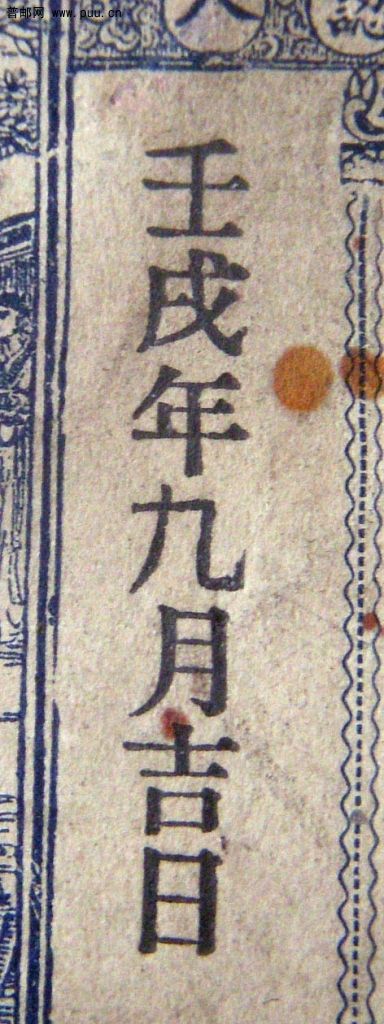 普邮网 www.puu.cn
壬戌年九月吉日